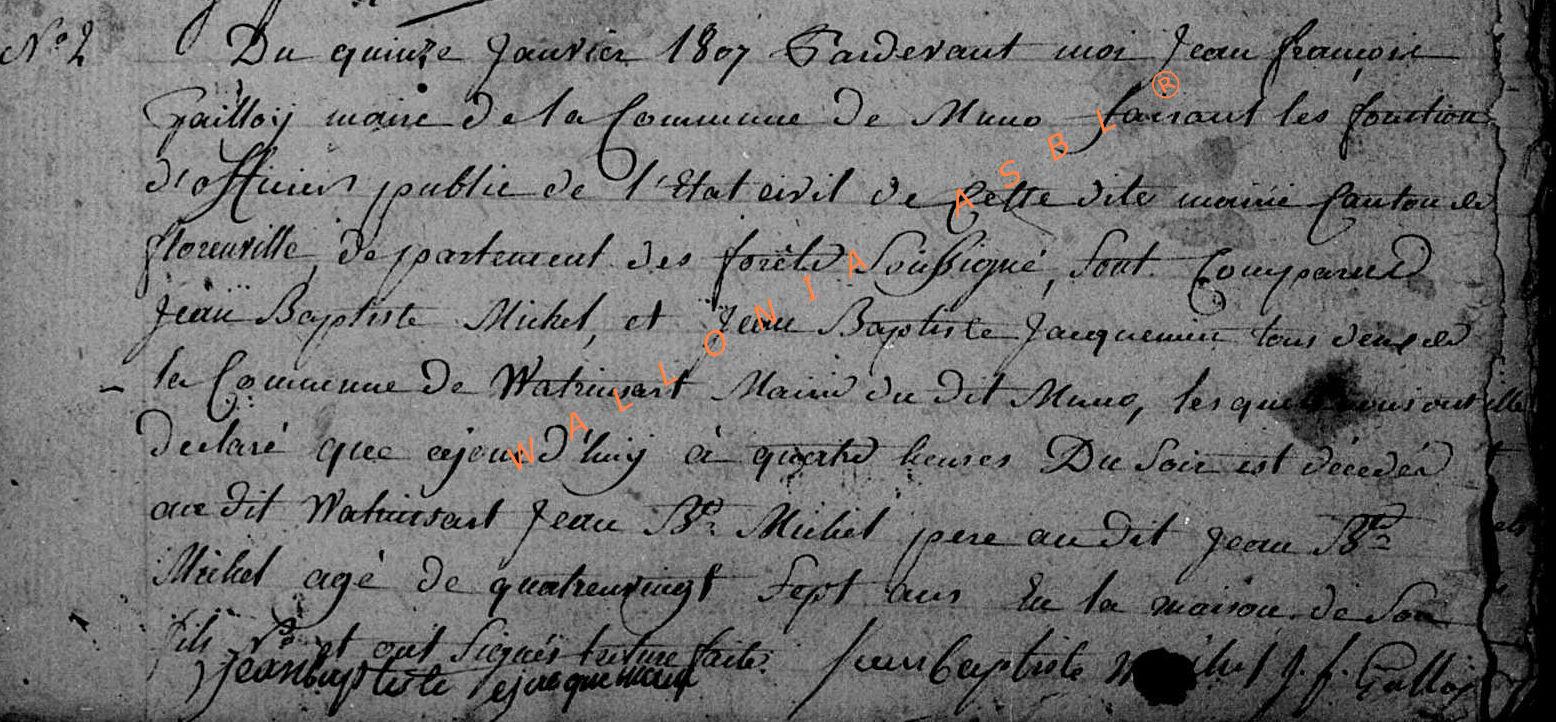 N° 2 Du quinze Janvier 1807 Pardevant moi Jean françois
Gailloÿ maire de la Commune de Muno faisant les fonction
d'officier public de l'Etat civil de Cette dite mairie Canton de
florenville, departement des forêts Soussigné, Sont Comparus
Jean Baptiste Michel, et Jean Baptiste Jacquemin tous deux de
la Commune de Watrinsart Mairie du dit Muno, lesquels nous ont
declaré que cejourd'huÿ à quatre heures Du Soir est décédé
au dit Watrinsart Jean Bte Michel pere au dit Jean Bte
Michel agé de quatrevingt Sept ans En la maison de Son
fils et ont Signés lecture faite. Jean baptiste Michel J. f. Galloÿ
Jean baptiste
WALLONIA ASBL ®